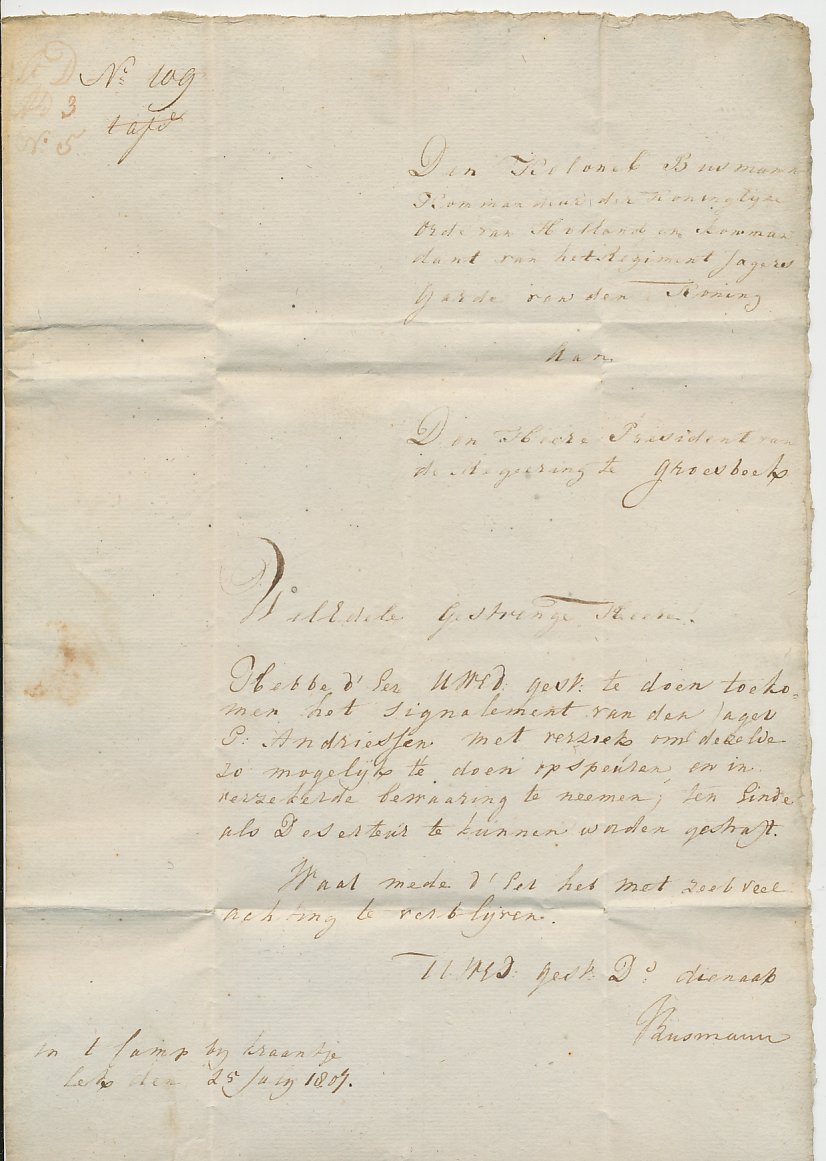 No D
Ad 3
No 5
No 109
Den Kolonel Busmann
Kommandeur der Koninglyke
Orde van Holland en Komman
dant van het Regiment Jagers
Garde van den Koning
Aan
Den Heere President van
de Regeering te Groesbeek
WelEdele Gestrenge Heere!
Hebbe d' Eer UWEd: gest: te doen toeko-
men het signalement van den Jager
P: Andriessen met verzoek om dezelve
zo mogelyk te doen opspeuren, en in
verzekerde bewaaring te neemen, ten Einde
als Deserteur te kunnen worden gestraft.
Waar mede d' Eer heb met zeer veel
achting te verblyven.
UWEd: gest: Dr dienaar
Busmann
In 't Camp by Kraantje
Lek den 25 July 1807.